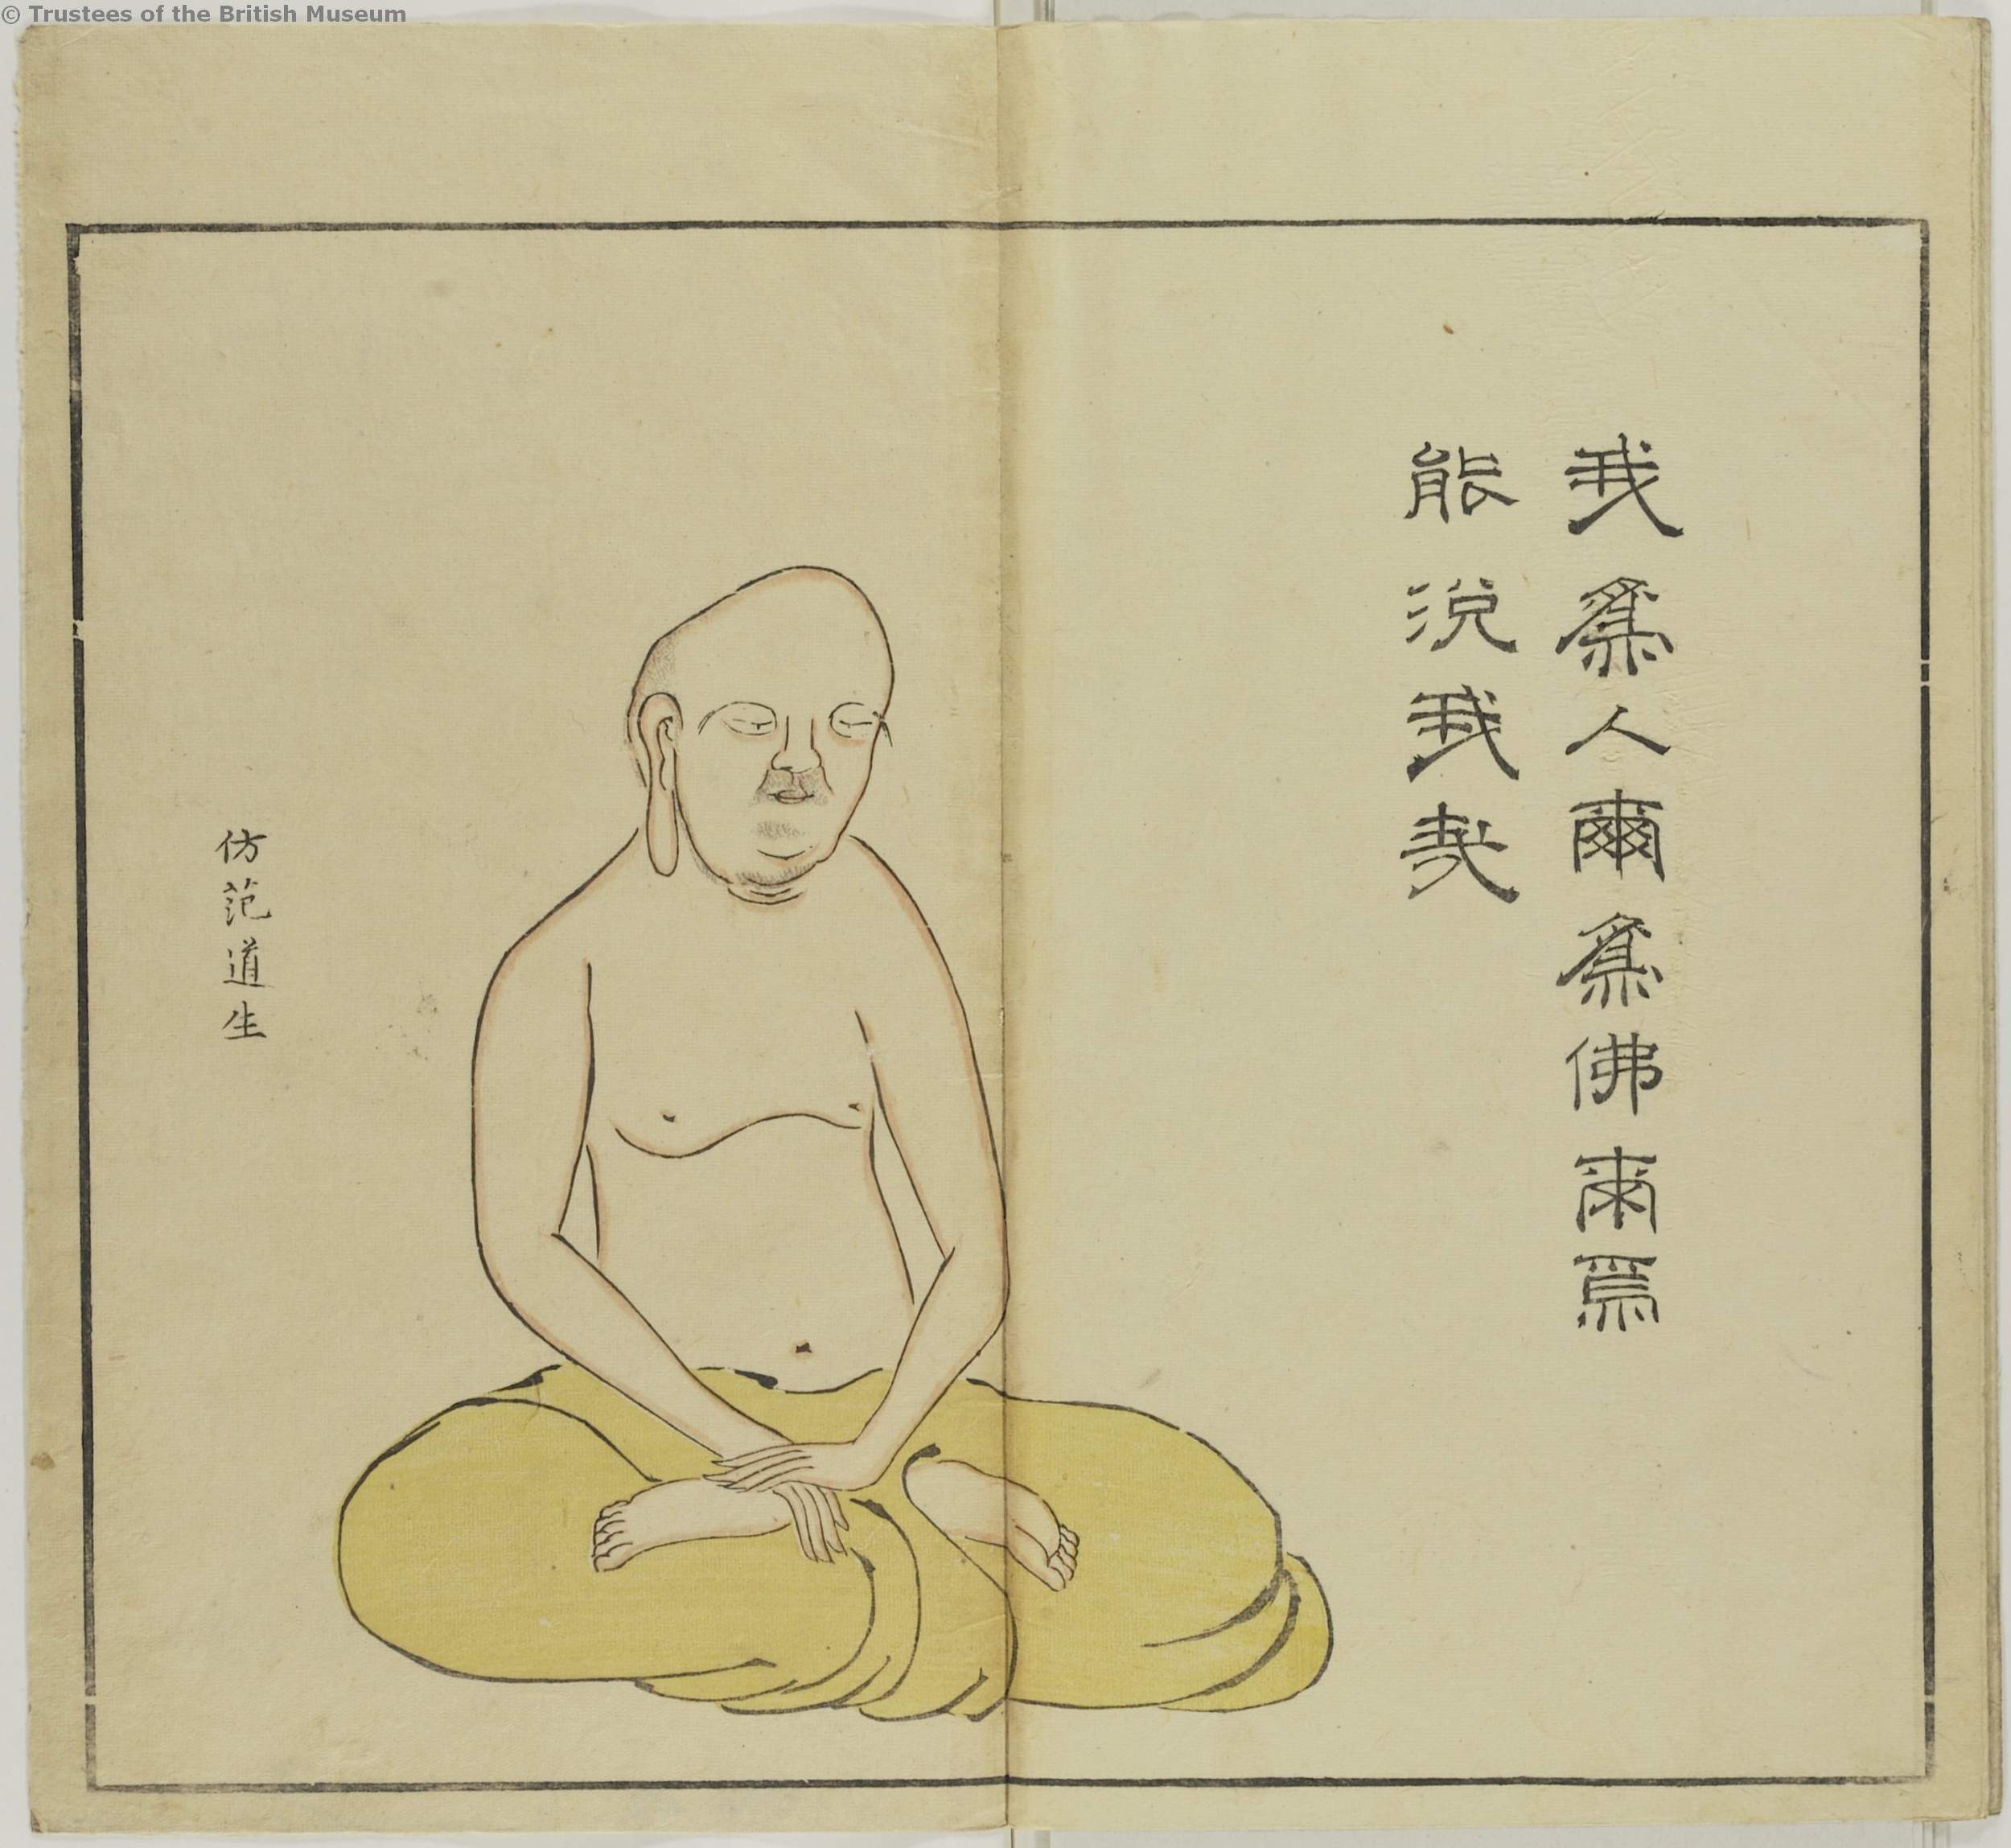 © Trustees of the British Museum
我為人爾為佛爾焉
能浼我哉
仿范道生